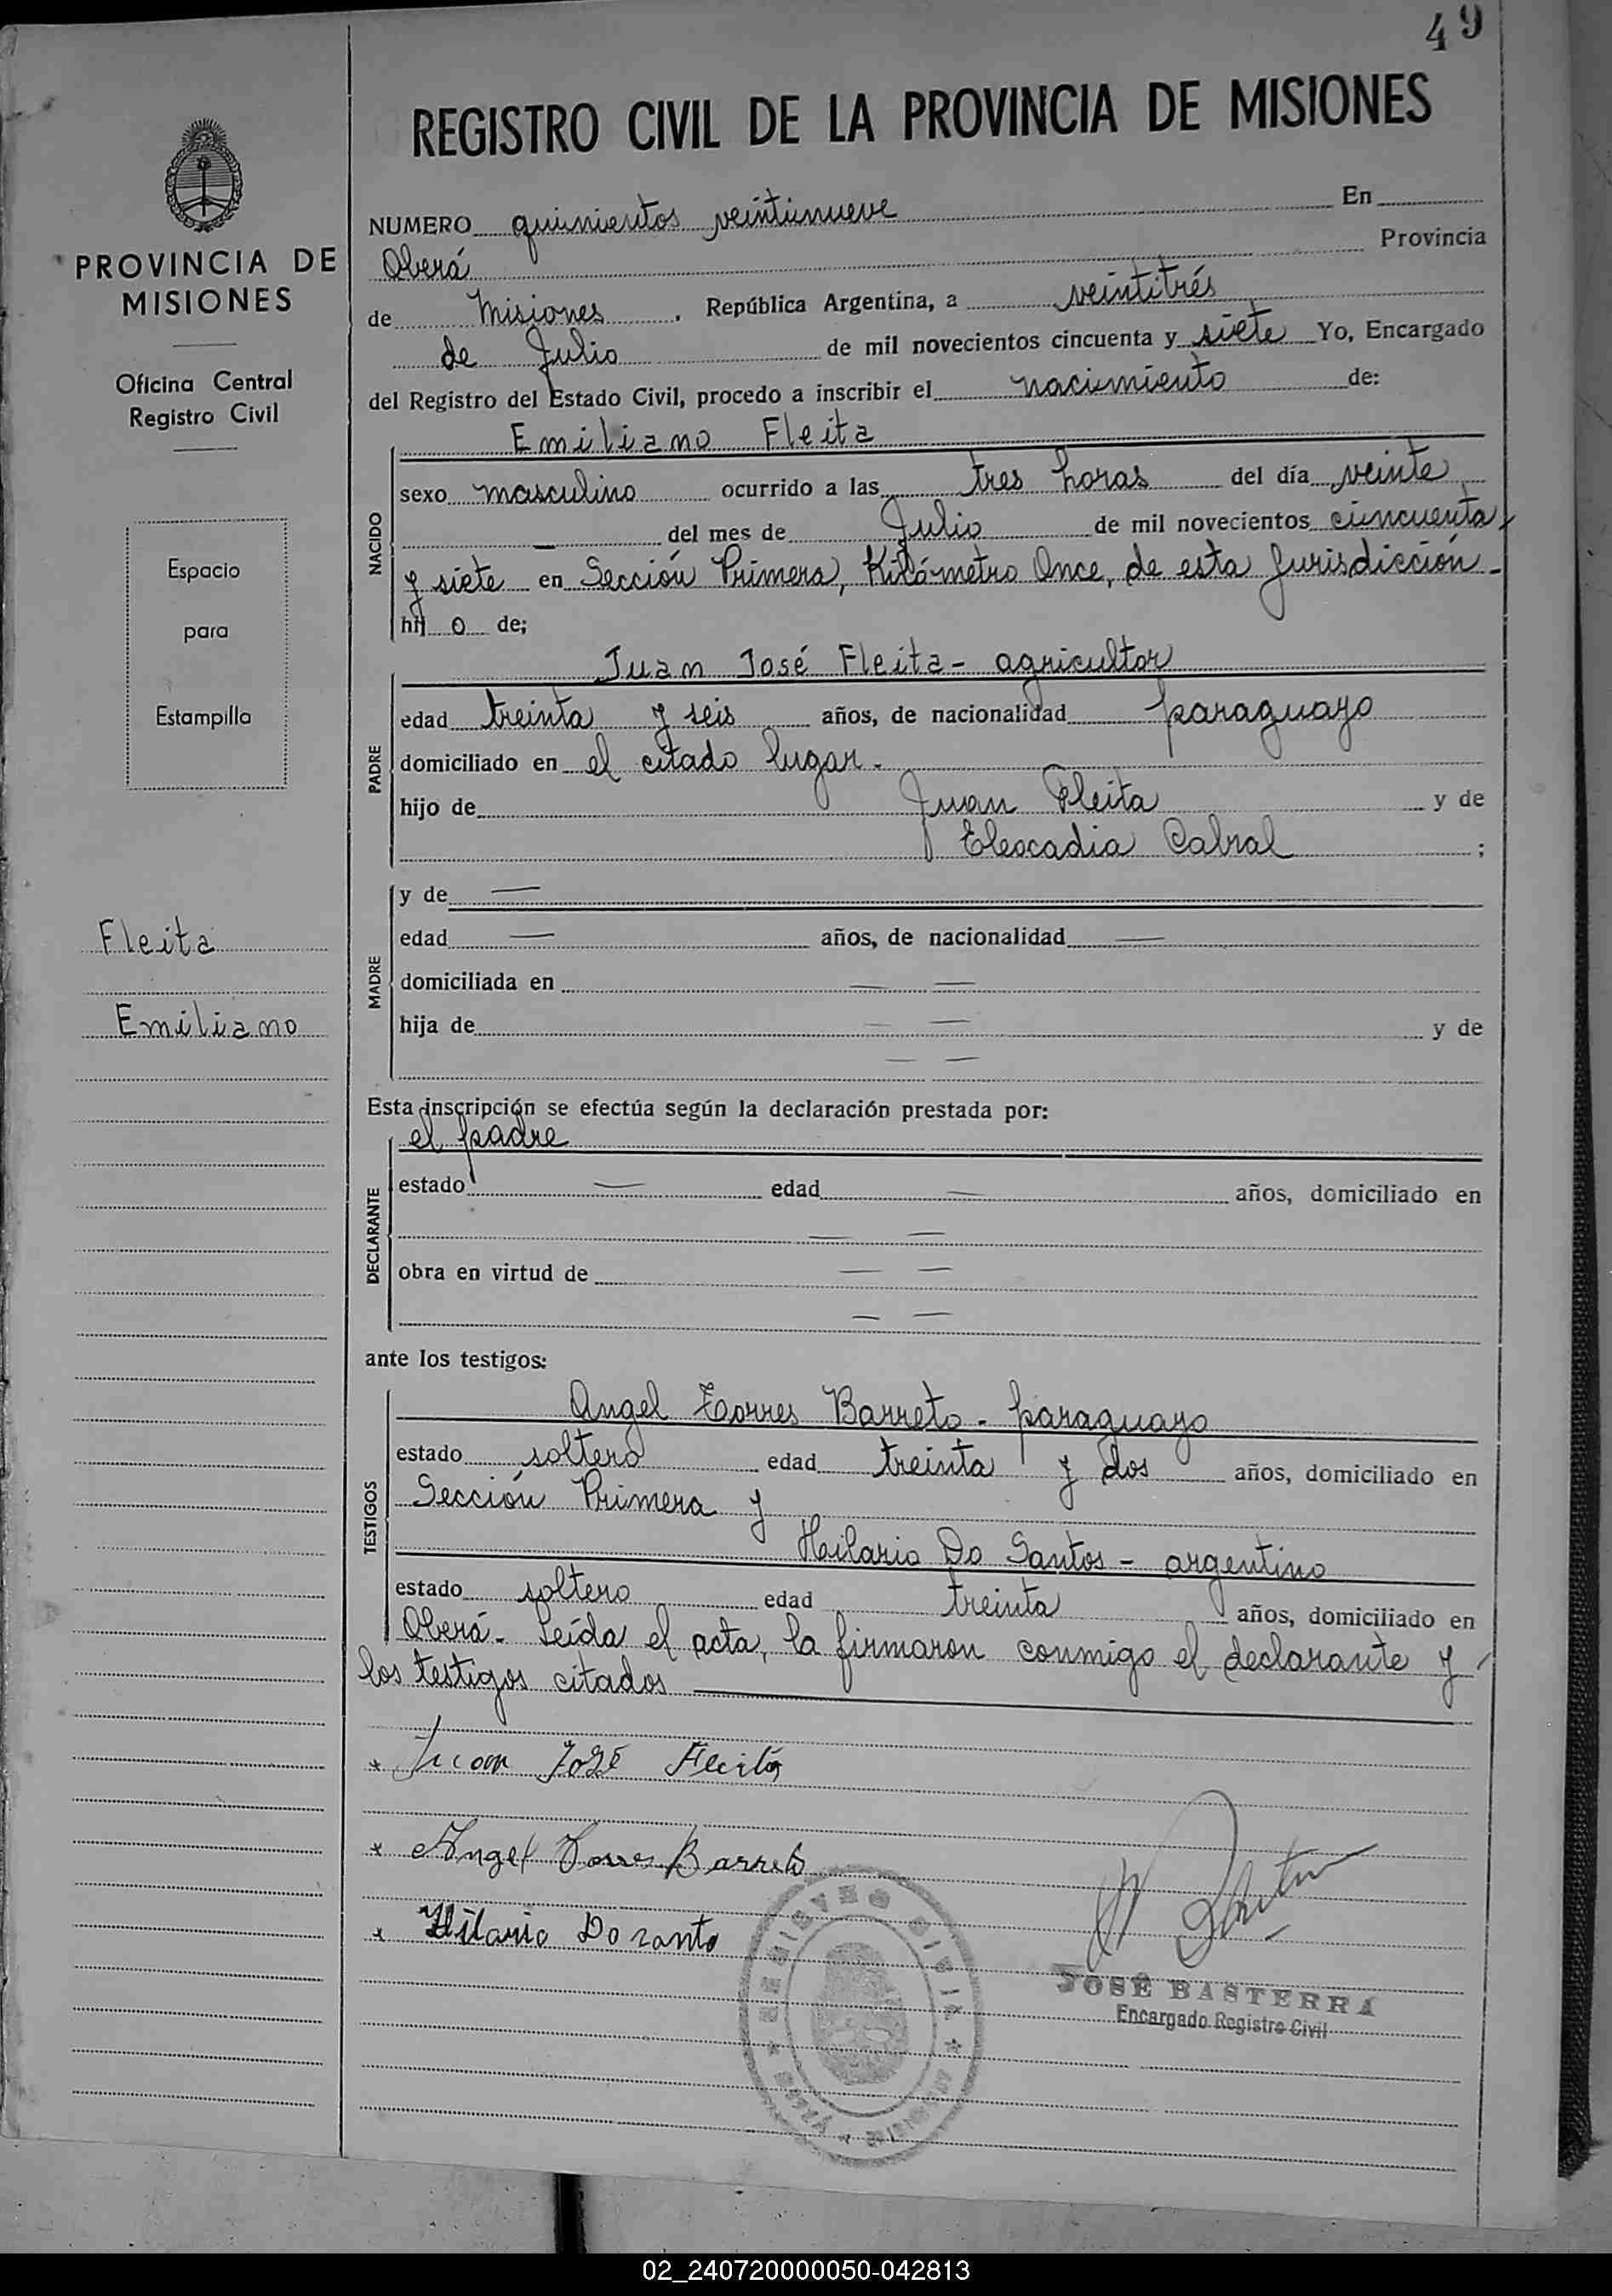 49
REGISTRO CIVIL DE LA PROVINCIA DE MISIONES
PROVINCIA DE
MISIONES
Oficina Central
Registro Civil
Espacio
para
Estampilla
Fleita
Emiliano
NUMERO quinientos veintinueve En
Oberá Provincia
de Misiones, República Argentina, a veintitrés
de Julio de mil novecientos cincuenta y siete Yo, Encargado
del Registro del Estado Civil, procedo a inscribir el nacimiento de:
Emiliano Fleita
NACIDO
sexo masculino ocurrido a las tres horas del día veinte
— del mes de Julio de mil novecientos cincuenta
y siete en Sección Primera, Kilómetro Once, de esta Jurisdicción -
hij o de;
Juan José Fleita - agricultor
PADRE
edad treinta y seis años, de nacionalidad paraguayo
domiciliado en el citado lugar.
hijo de Juan Fleita y de
Eleocadia Cabral ;
MADRE
y de —
edad — años, de nacionalidad —
domiciliada en — —
hija de — — y de
— —
Esta inscripción se efectúa según la declaración prestada por:
el padre
DECLARANTE
estado — edad — años, domiciliado en
— —
obra en virtud de — —
— —
ante los testigos:
TESTIGOS
Angel Torres Barreto - paraguayo
estado soltero edad treinta y dos años, domiciliado en
Sección Primera y
Hilario Do Santos - argentino
estado soltero edad treinta años, domiciliado en
Oberá - Leída el acta, la firmaron conmigo el declarante y
los testigos citados
Juan José Fleita
Angel Torres Barreto
Hilario Do santo
JOSÉ BASTERRA
Encargado Registro Civil
02_240720000050-042813